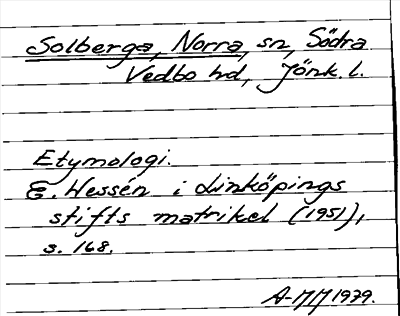 Solberga, Norra, sn, Södra
Vedbo hd, Jönk. l.
Etymologi.
E. Wessén i Linköpings
stifts matrikel (1951),
s. 168.
A-MM 1979.